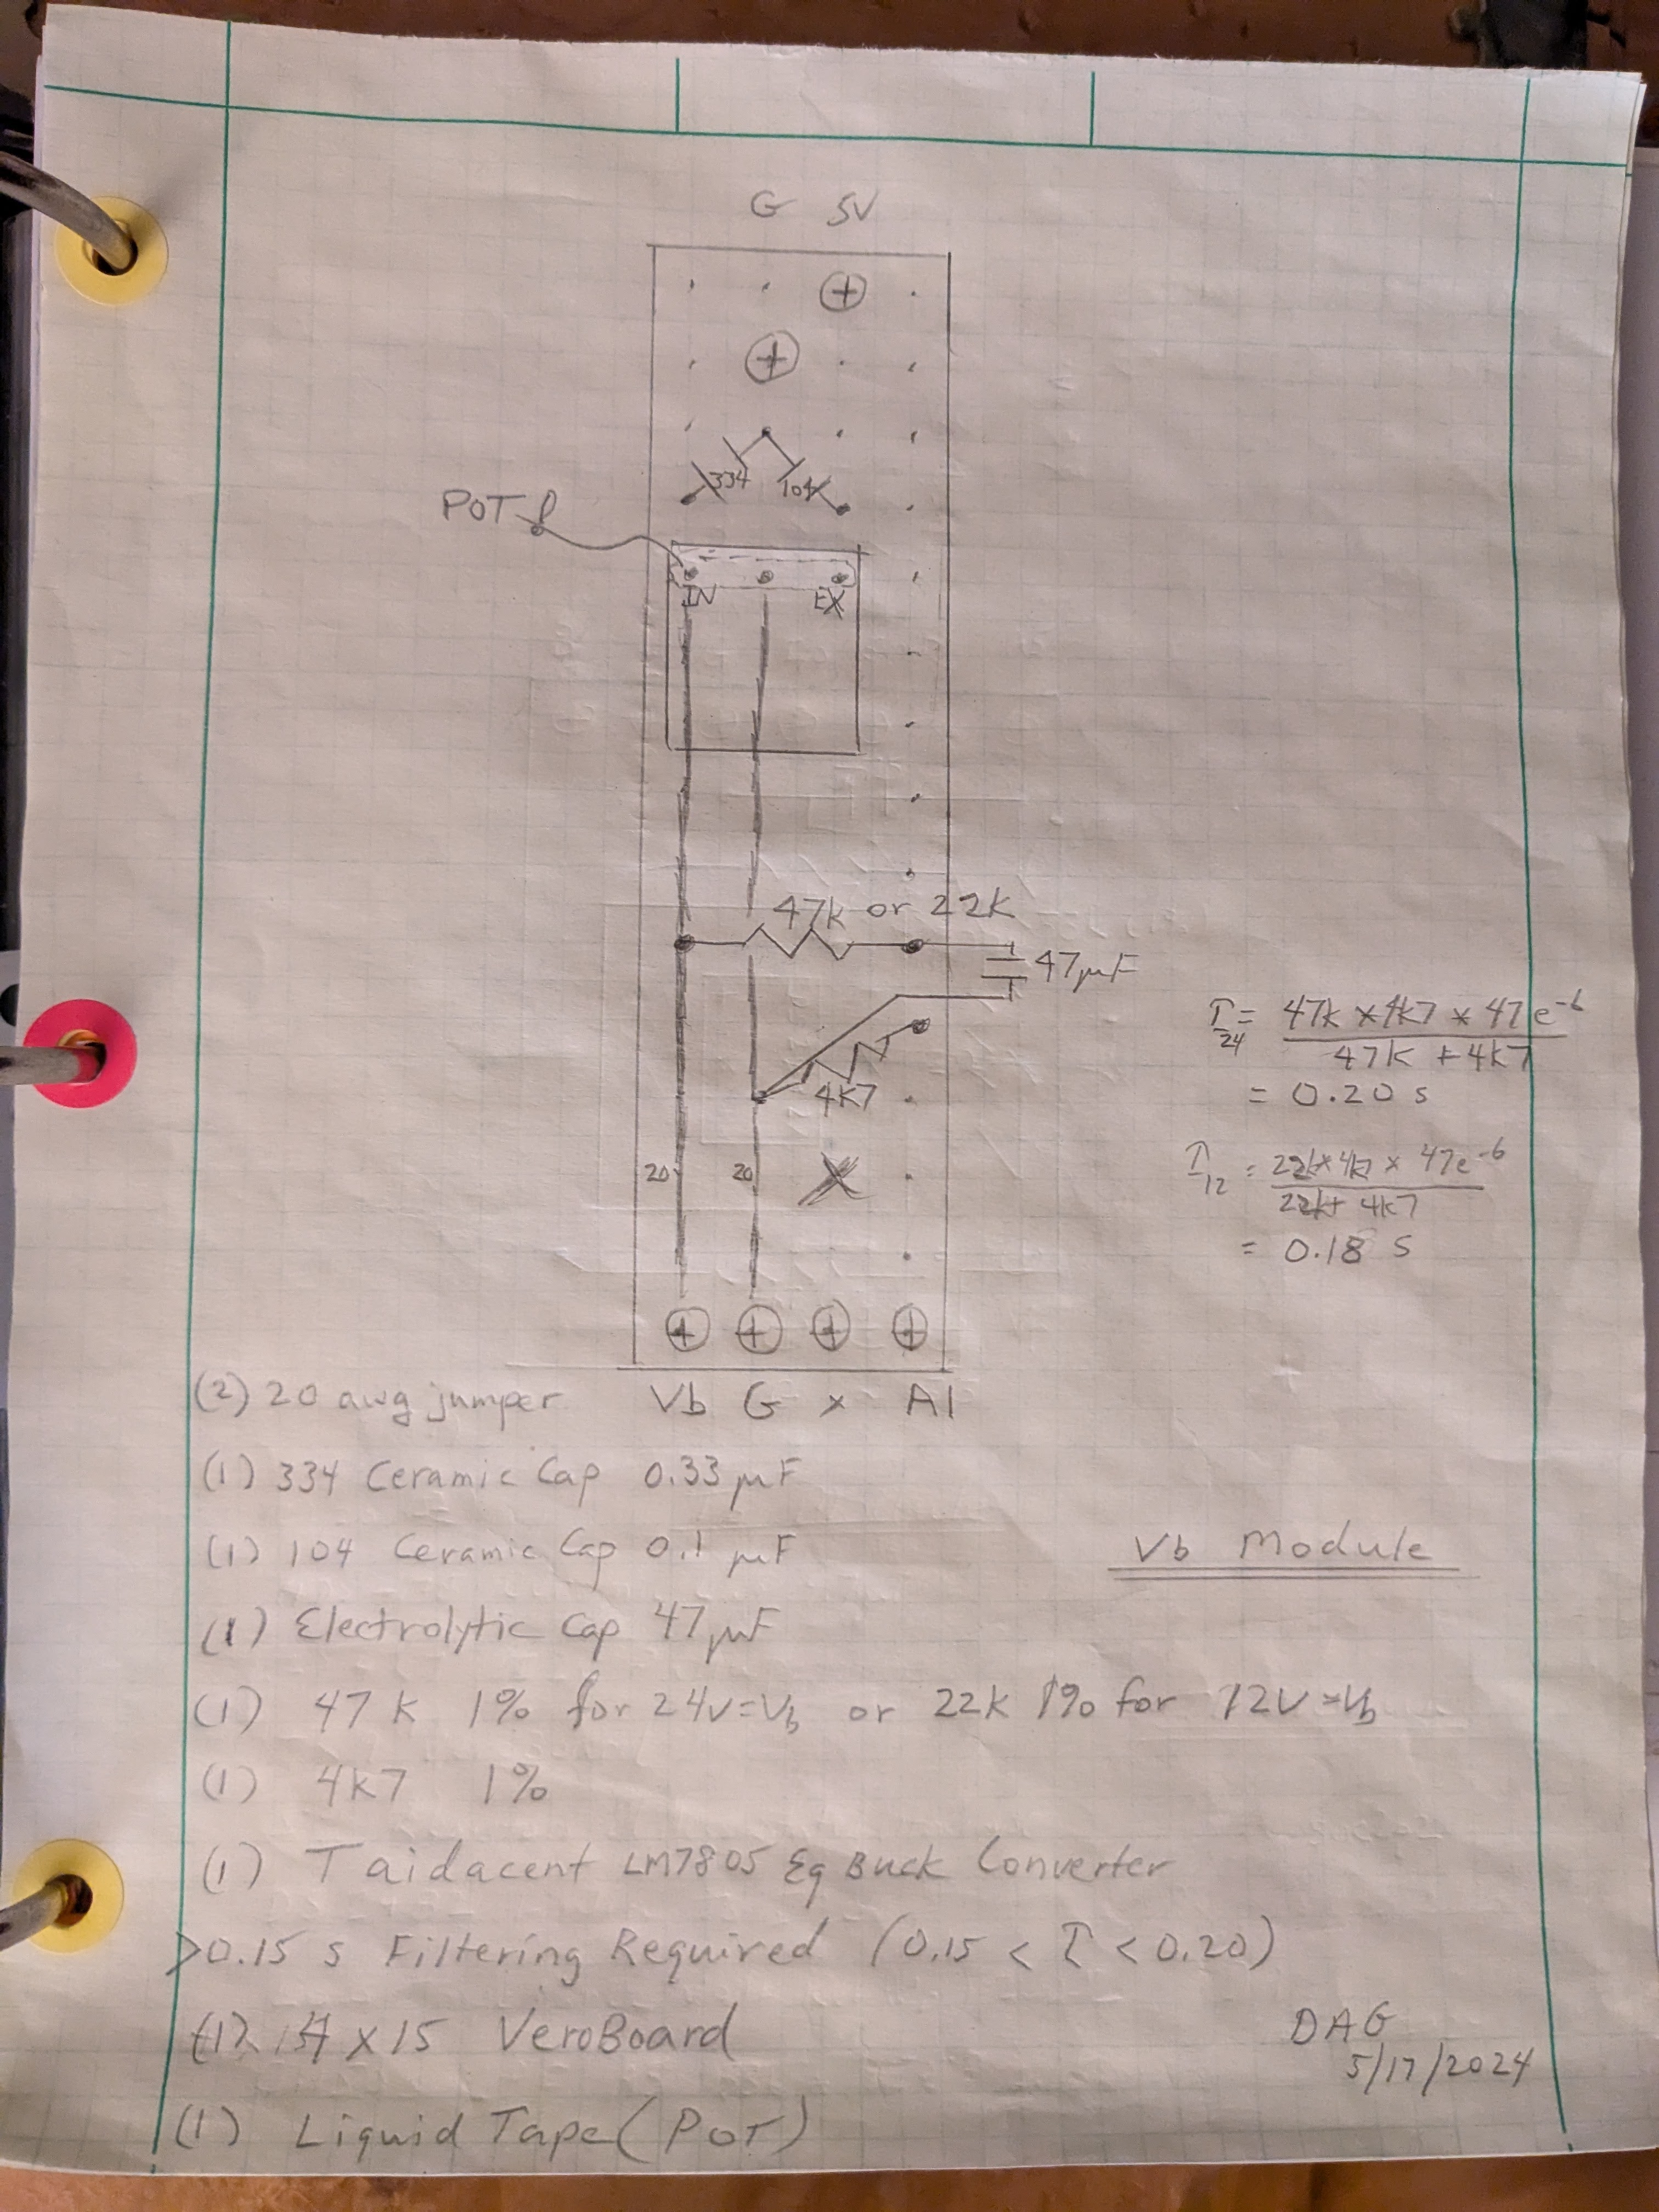 G 5V
334 104
POT
IN EX
47k or 22k
47μF
4K7
20 20 X
Vb G x A1
τ24 = 47k x 4k7 * 47e-6
47k + 4k7
= 0.20 s
τ12 = 22k*4k7 x 47e-6
22k+ 4k7
= 0.18 s
(2) 20 awg jumper
(1) 334 Ceramic Cap 0.33 μF
(1) 104 Ceramic Cap 0.1 μF
Vb Module
(1) Electrolytic Cap 47μF
(1) 47 K 1% for 24v=Vb or 22k 1% for 12V=Vb
(1) 4K7 1%
(1) Taidacent LM7805 Eq Buck Converter
>0.15 s Filtering Required (0.15 < τ < 0.20)
(1) x 15 VeroBoard
DAG
5/17/2024
(1) Liquid Tape (POT)